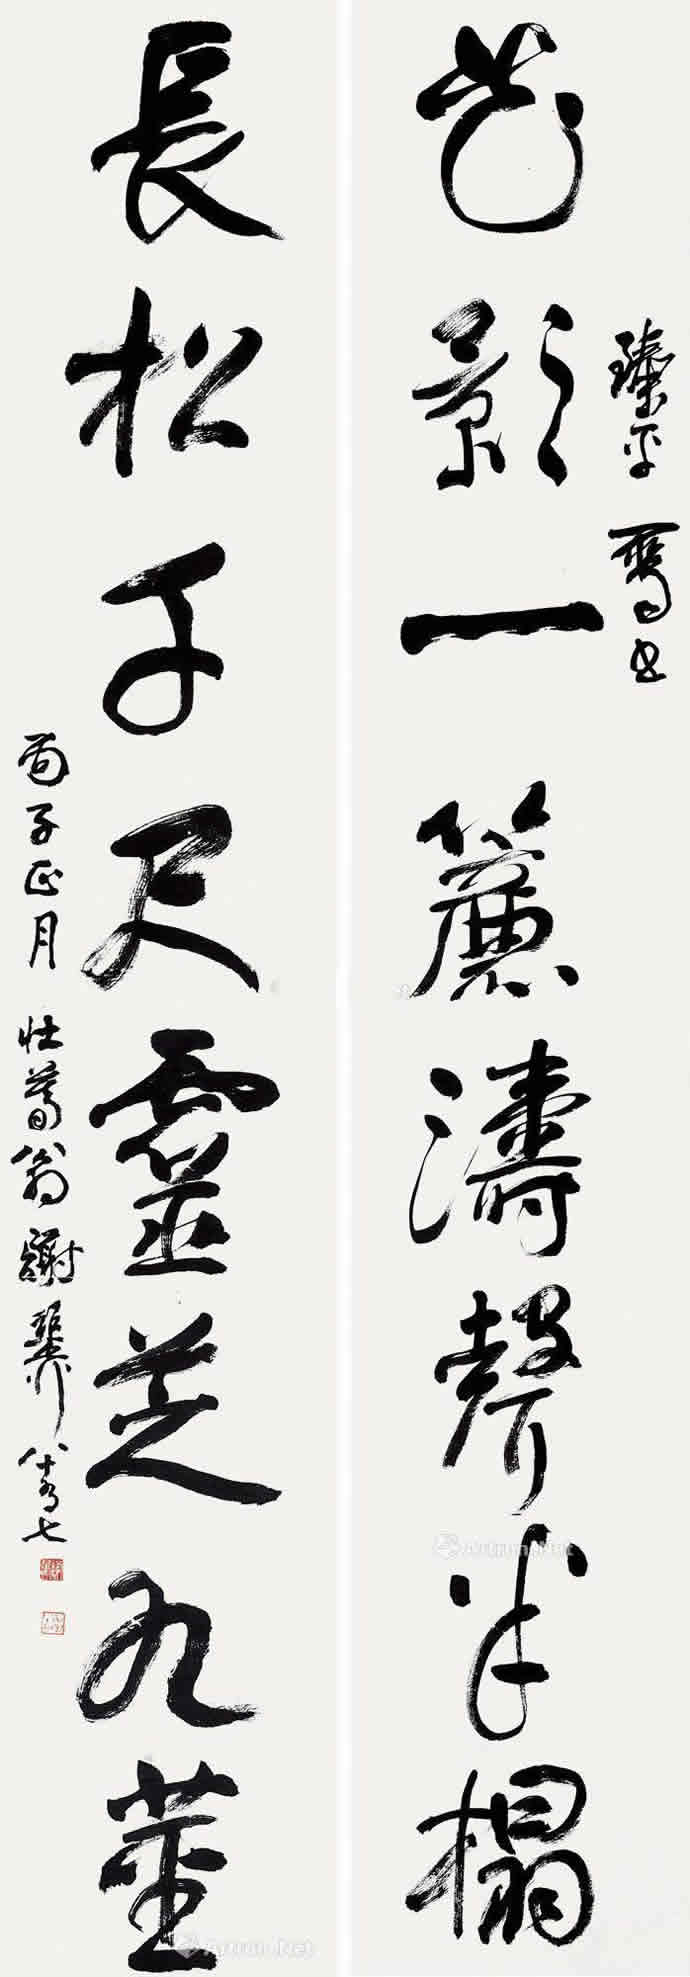 平
花影一簾濤聲半榻
長松千尺靈芝九莖
丙子正月 壯暮翁謝稚柳 八十有七
Artron.Net
Artron.Net